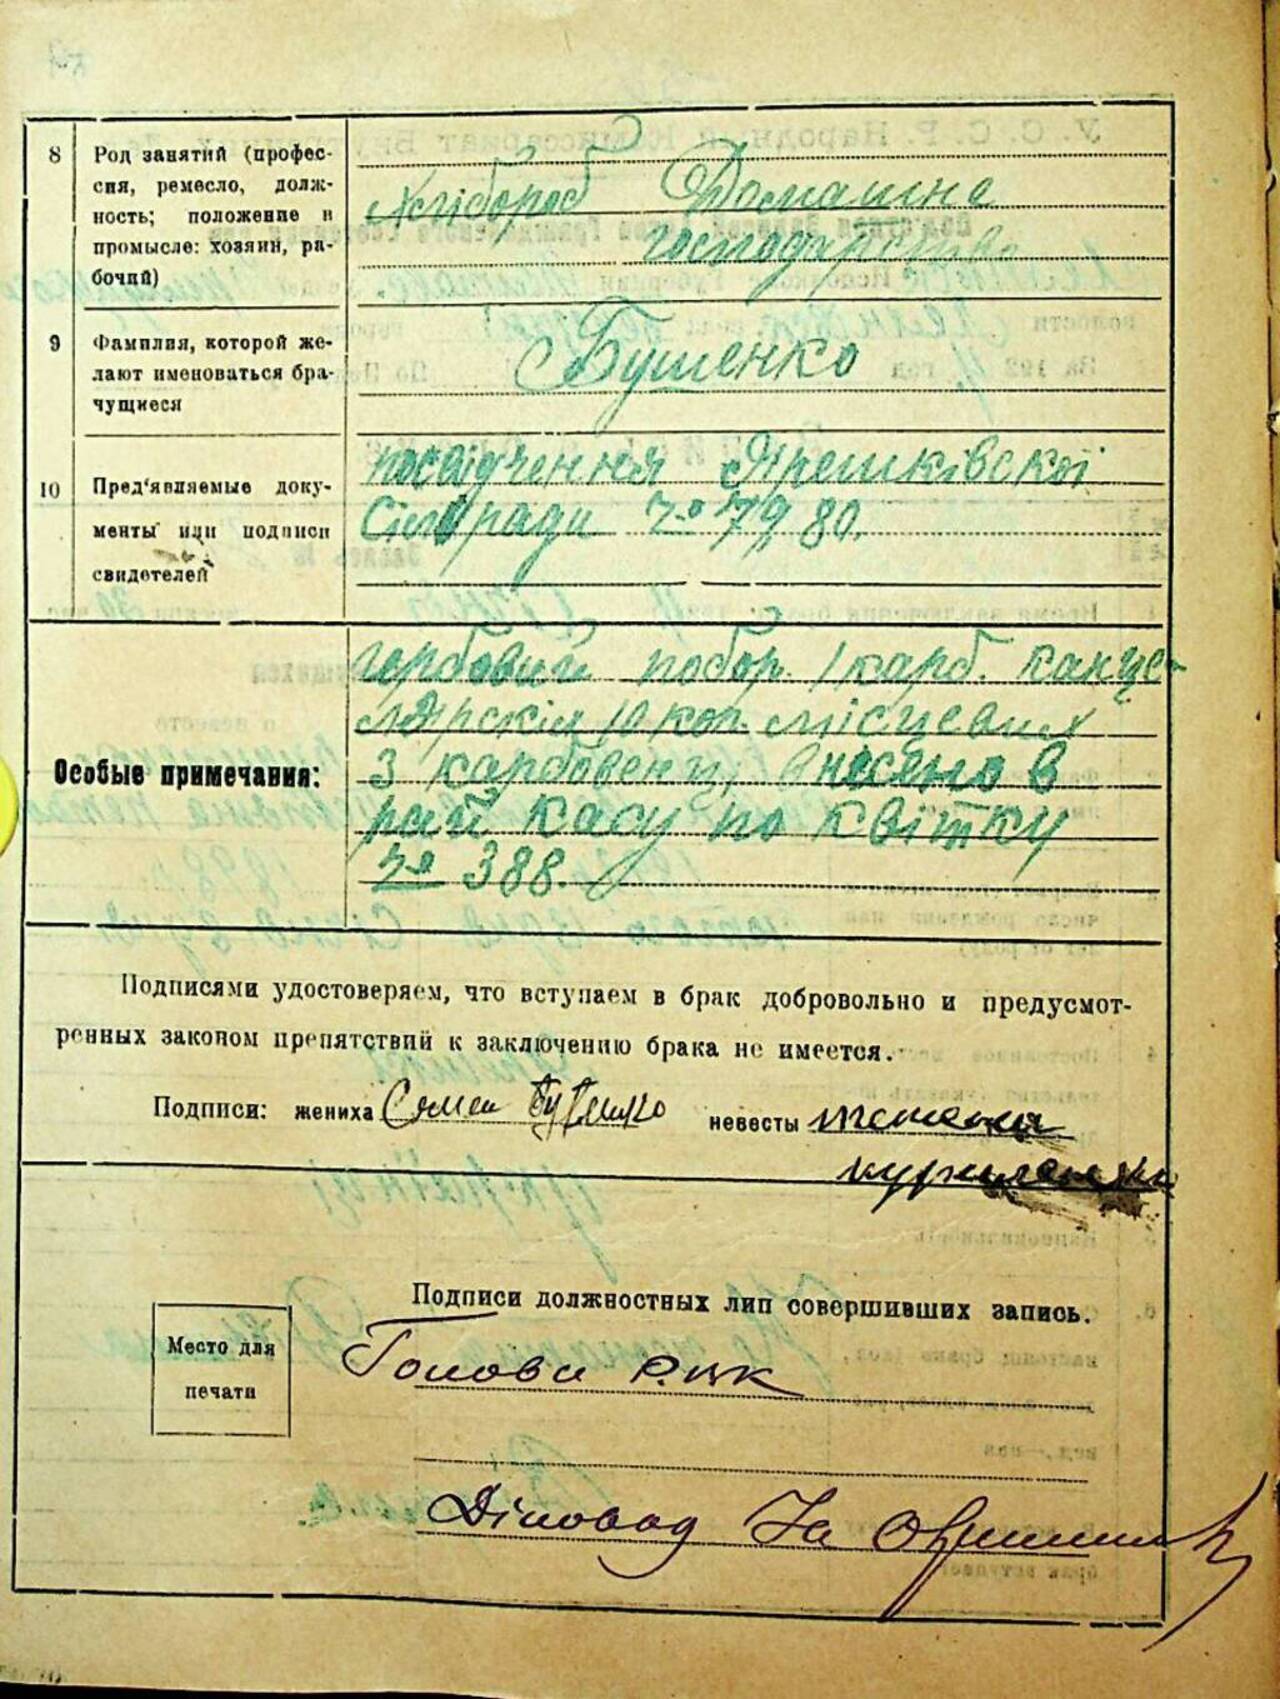 8
Род занятий (профес-
сия, ремесло, долж-
ность; положение в
промысле: хозяин, ра-
бочий)
Хлібороб Домашнє
господарство
9
Фамилия, которой же-
лают именоваться бра-
чущиеся
Бушенко
10
Пред'являемые доку-
менты или подписи
свидетелей
посвідчення Ярешківскої
Сільради № 79, 80.
Особые примечания:
гербовий побор. 1 карб. канце-
лярскіх 10 коп. місцевих
3 карбовенці, внесено в
рай касу по квітку
№ 388.
Подписями удостоверяем, что вступаем в брак добровольно и предусмот-
ренных законом препятствий к заключению брака не имеется.
Подписи: жениха Семен невесты
Подписи должностных лиц совершивших запись.
Место для
печати
Голова Р.В.К
Діловод За